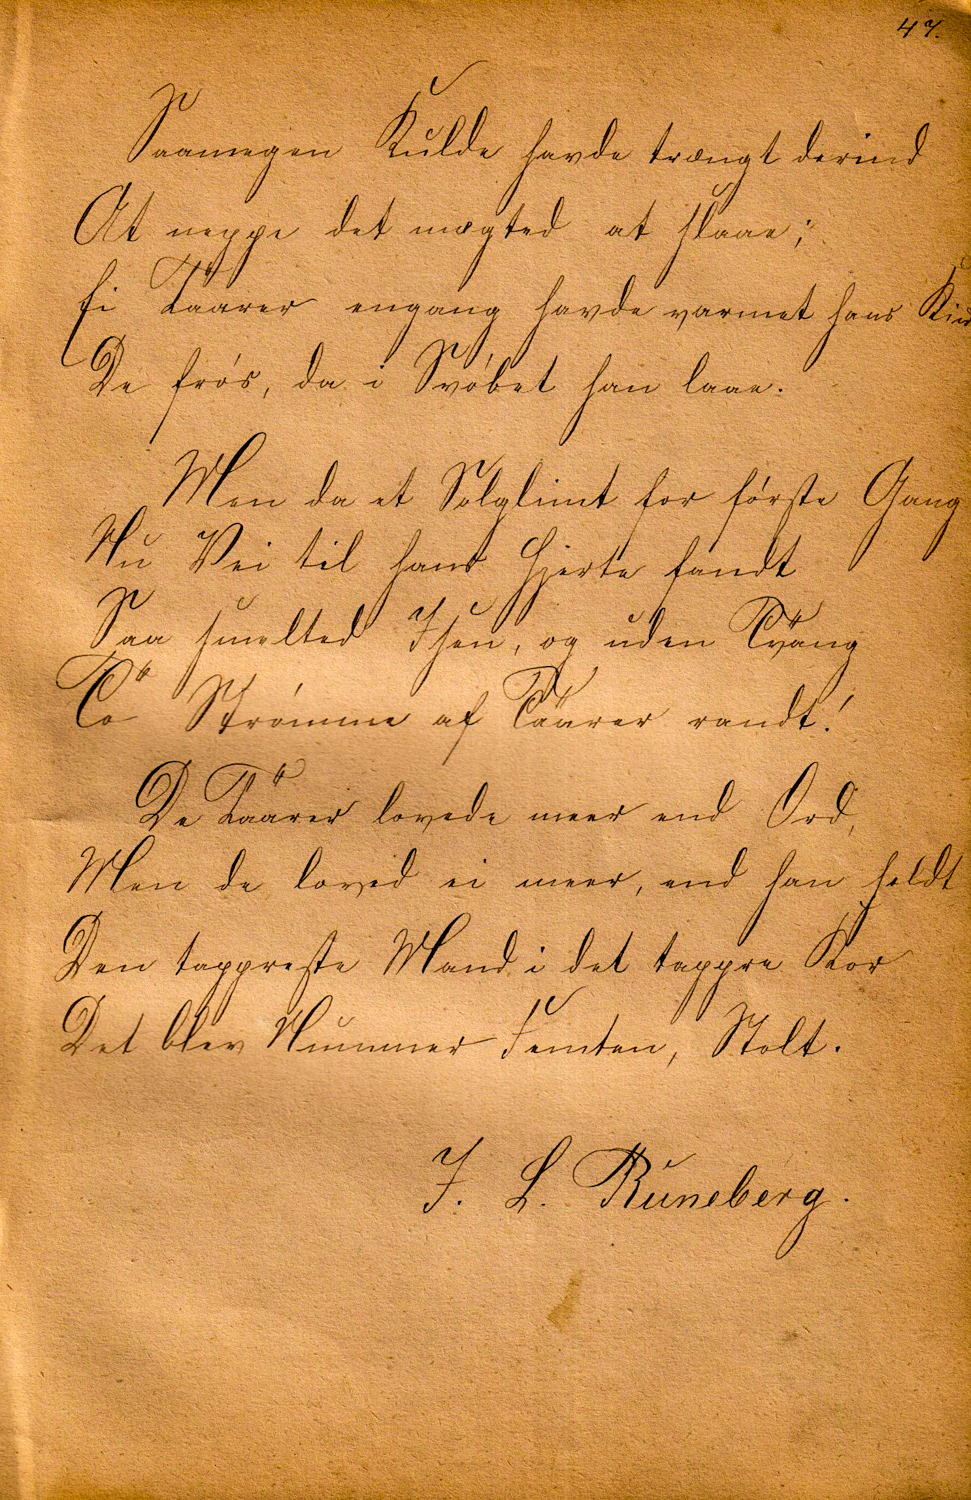 47.
Saamegen Kulde havde trængt derind
At neppe det mægted at slaae;
Ei Taarer engang havde varmet hans
De frös, da i Svöbet han laae.
Men da et Solglimt for förste Gang
Nu Vei til hans Hjerte fandt
Saa smelted Isen, og uden Tvang
To Strömme af Taarer randt!
De Taarer lovede meer end Ord,
Men de loved ei meer, end han holdt
Den tappreste Mand i det tappre Kor
Det blev Nummer Femten, Stolt.
J. L. Runeberg.